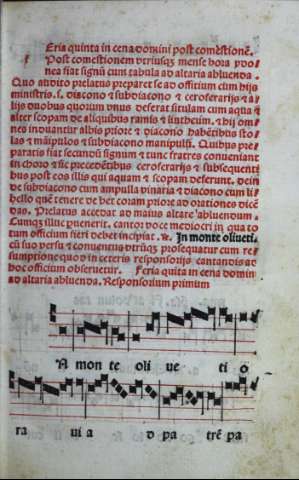 Eria quinta in cena domini post comestionē.
Post comestionem vtriusq; mense hora ydo
nea fiat signū cum tabula ad altaria abluenda.
Quo audito prelatus preparet se ad officium cum hijs
ministris. s. diacono & subdiacono & ceroferarijs & a
lijs duobus quorum vnus deferat situlam cum aqua &
alter scopam de aliquibus ramis & lintheum. & hij om
nes induantur albis priore & diacono habētibus sto
las & māipulos & subdiacono manipulū. Quibus pre
paratis fiat secundū signum & tunc fratres conueniant
in choro & sic precedētibus ceroferarijs & subsequenti
bus post eos illis qui aquam & scopam deferunt. dein
de subdiacono cum ampulla vinaria & diacono cum li
bello quē tenere debet coram priore ad orationes dicē
das. Prelatus accedat ad maius altare abluendum.
Cumq; illuc puenerit. cantor voce mediocri in qua to
tum officium fieri debet incipiat. R. In monte oliueti.
cū suo versu & conuentus vtrūq; prosequatur cum re
sumptione quod in ceteris responsorijs cantandis ad
hoc officium obseruetur. Feria quīta in cena domini
ad altaria abluenda. Responsorium primum
N mon te oli ue ti o
ra ui a d pa trē pa